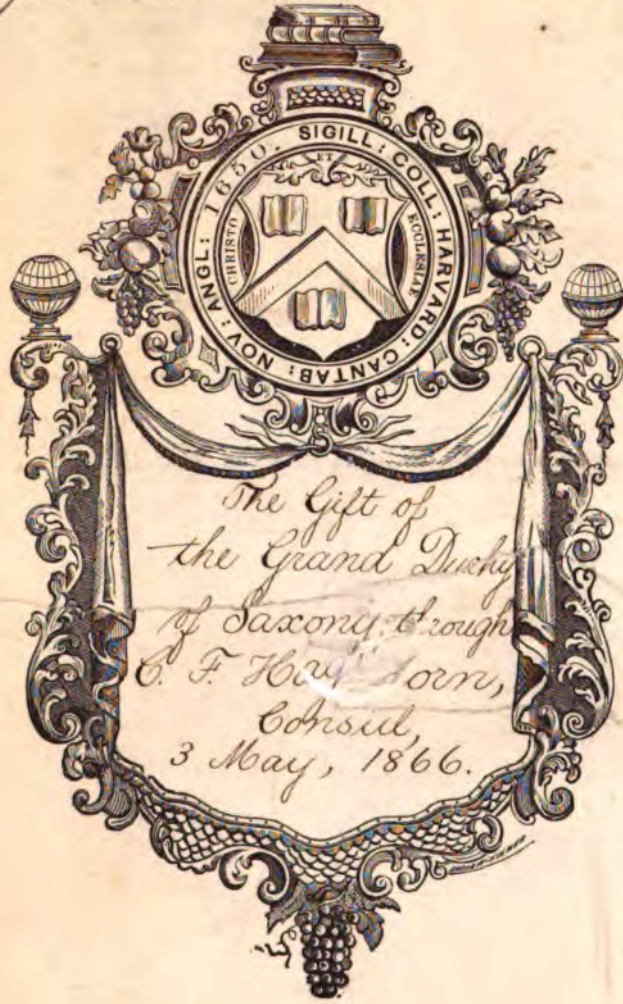 SIGILL: COLL: HARVARD: CANTAB: NOV: ANGL: 1650.
CHRISTO ET ECCLESIAE
The Gift of
the Grand Duchy
of Saxony, through
C. F. Hag dorn,
Consul,
3 May, 1866.